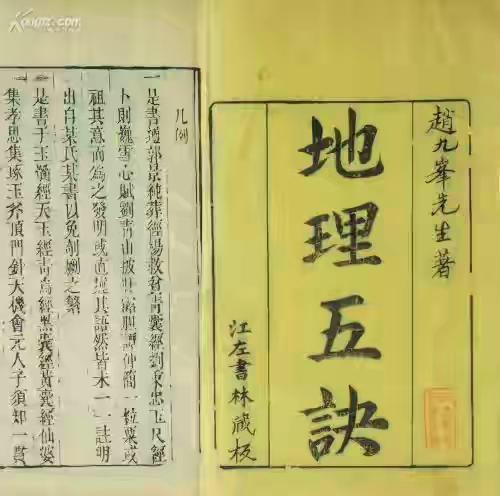 趙九峯先生著
地理五訣
江左書林藏板
凡例
一是書遵郭景純葬經楊救貧青囊經劉秉忠玉尺經
卜則巍雪心賦劉青山披肝露膽譚仲簡一粒粟或
祖其意而為之發明或直其語然皆未一一註明
出自某氏某書以免剞劂之繁
一是書于玉髓經天玉經青烏經黑囊經黃囊經仙婆
集孝思集琢玉斧頂門針天機會元人子須知一貫